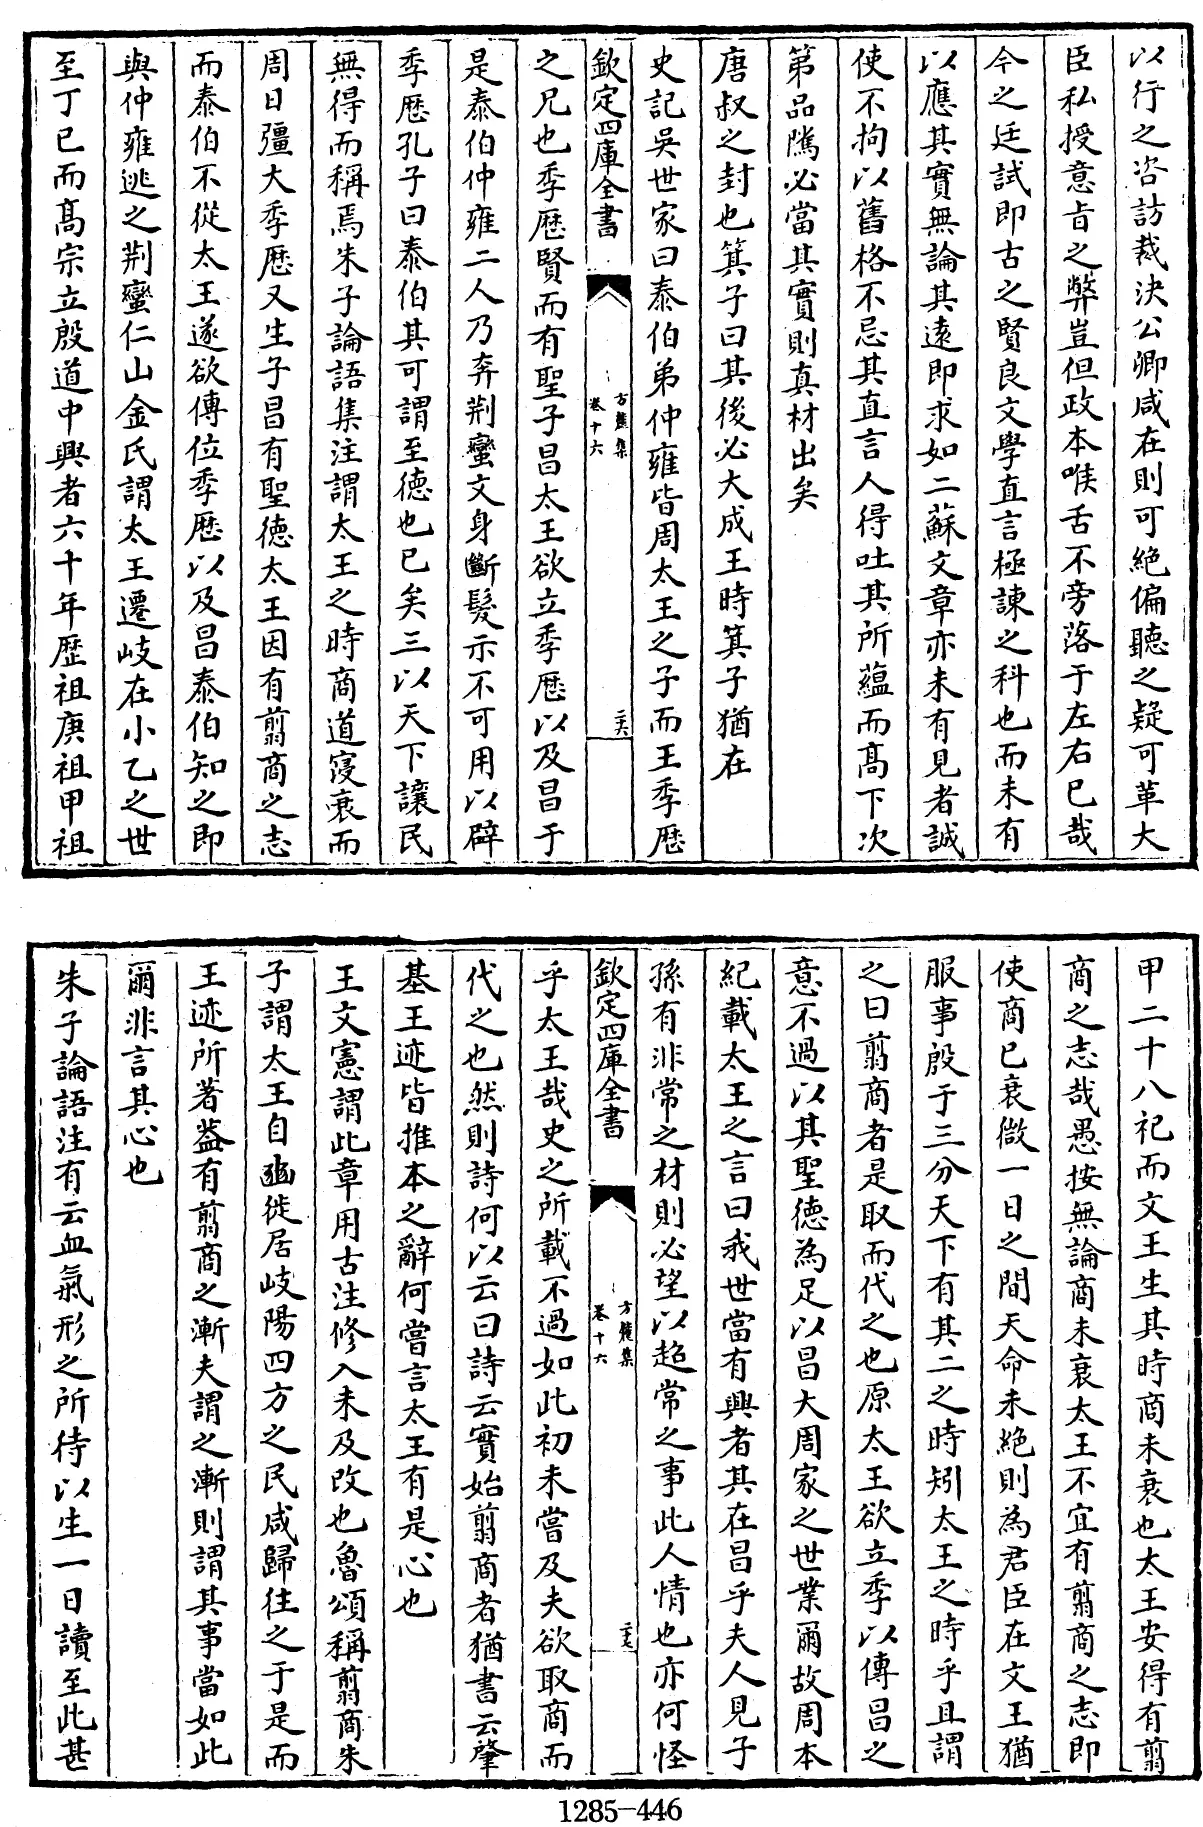 以行之咨訪裁決公卿咸在則可絶偏聽之疑可革大
臣私授意㫖之弊豈但政本喉舌不旁落于左右已哉
今之廷試即古之賢良文學直言極諫之科也而未有
以應其實無論其遠即求如二蘇文章亦未有見者誠
使不拘以舊格不忌其直言人得吐其所蘊而髙下次
第品隲必當其實則真材出矣
唐叔之封也箕子曰其後必大成王時箕子猶在
史記吳世家曰泰伯弟仲雍皆周太王之子而王季歴
欽定四庫全書
方麓集
卷十六
二六
之兄也季歴賢而有聖子昌太王欲立季歴以及昌于
是泰伯仲雍二人乃奔荆蠻文身斷髮示不可用以辟
季歴孔子曰泰伯其可謂至德也已矣三以天下讓民
無得而稱焉朱子論語集注謂太王之時商道寖衰而
周日彊大季歴又生子昌有聖德太王因有翦商之志
而泰伯不從太王遂欲傳位季歴以及昌泰伯知之即
與仲雍逃之荆蠻仁山金氏謂太王遷岐在小乙之世
至丁巳而髙宗立殷道中興者六十年歴祖庚祖甲祖
甲二十八祀而文王生其時商未衰也太王安得有翦
商之志哉愚按無論商未衰太王不宜有翦商之志即
使商已衰微一日之間天命未絶則為君臣在文王猶
服事殷于三分天下有其二之時矧太王之時乎且謂
之曰翦商者是取而代之也原太王欲立季以傳昌之
意不過以其聖德為足以昌大周家之世業爾故周本
紀載太王之言曰我世當有興者其在昌乎夫人見子
孫有非常之材則必望以超常之事此人情也亦何怪
欽定四庫全書
方麓集
卷十六
乎太王哉史之所載不過如此初未嘗及夫欲取商而
代之也然則詩何以云曰詩云實始翦商者猶書云肇
基王迹皆推本之辭何嘗言太王有是心也
王文憲謂此章用古注修入未及改也魯頌稱翦商朱
子謂太王自豳徙居岐陽四方之民咸歸往之于是而
王迹所著葢有翦商之漸夫謂之漸則謂其事當如此
爾非言其心也
朱子論語注有云血氣形之所待以生一日讀至此甚
1285-446